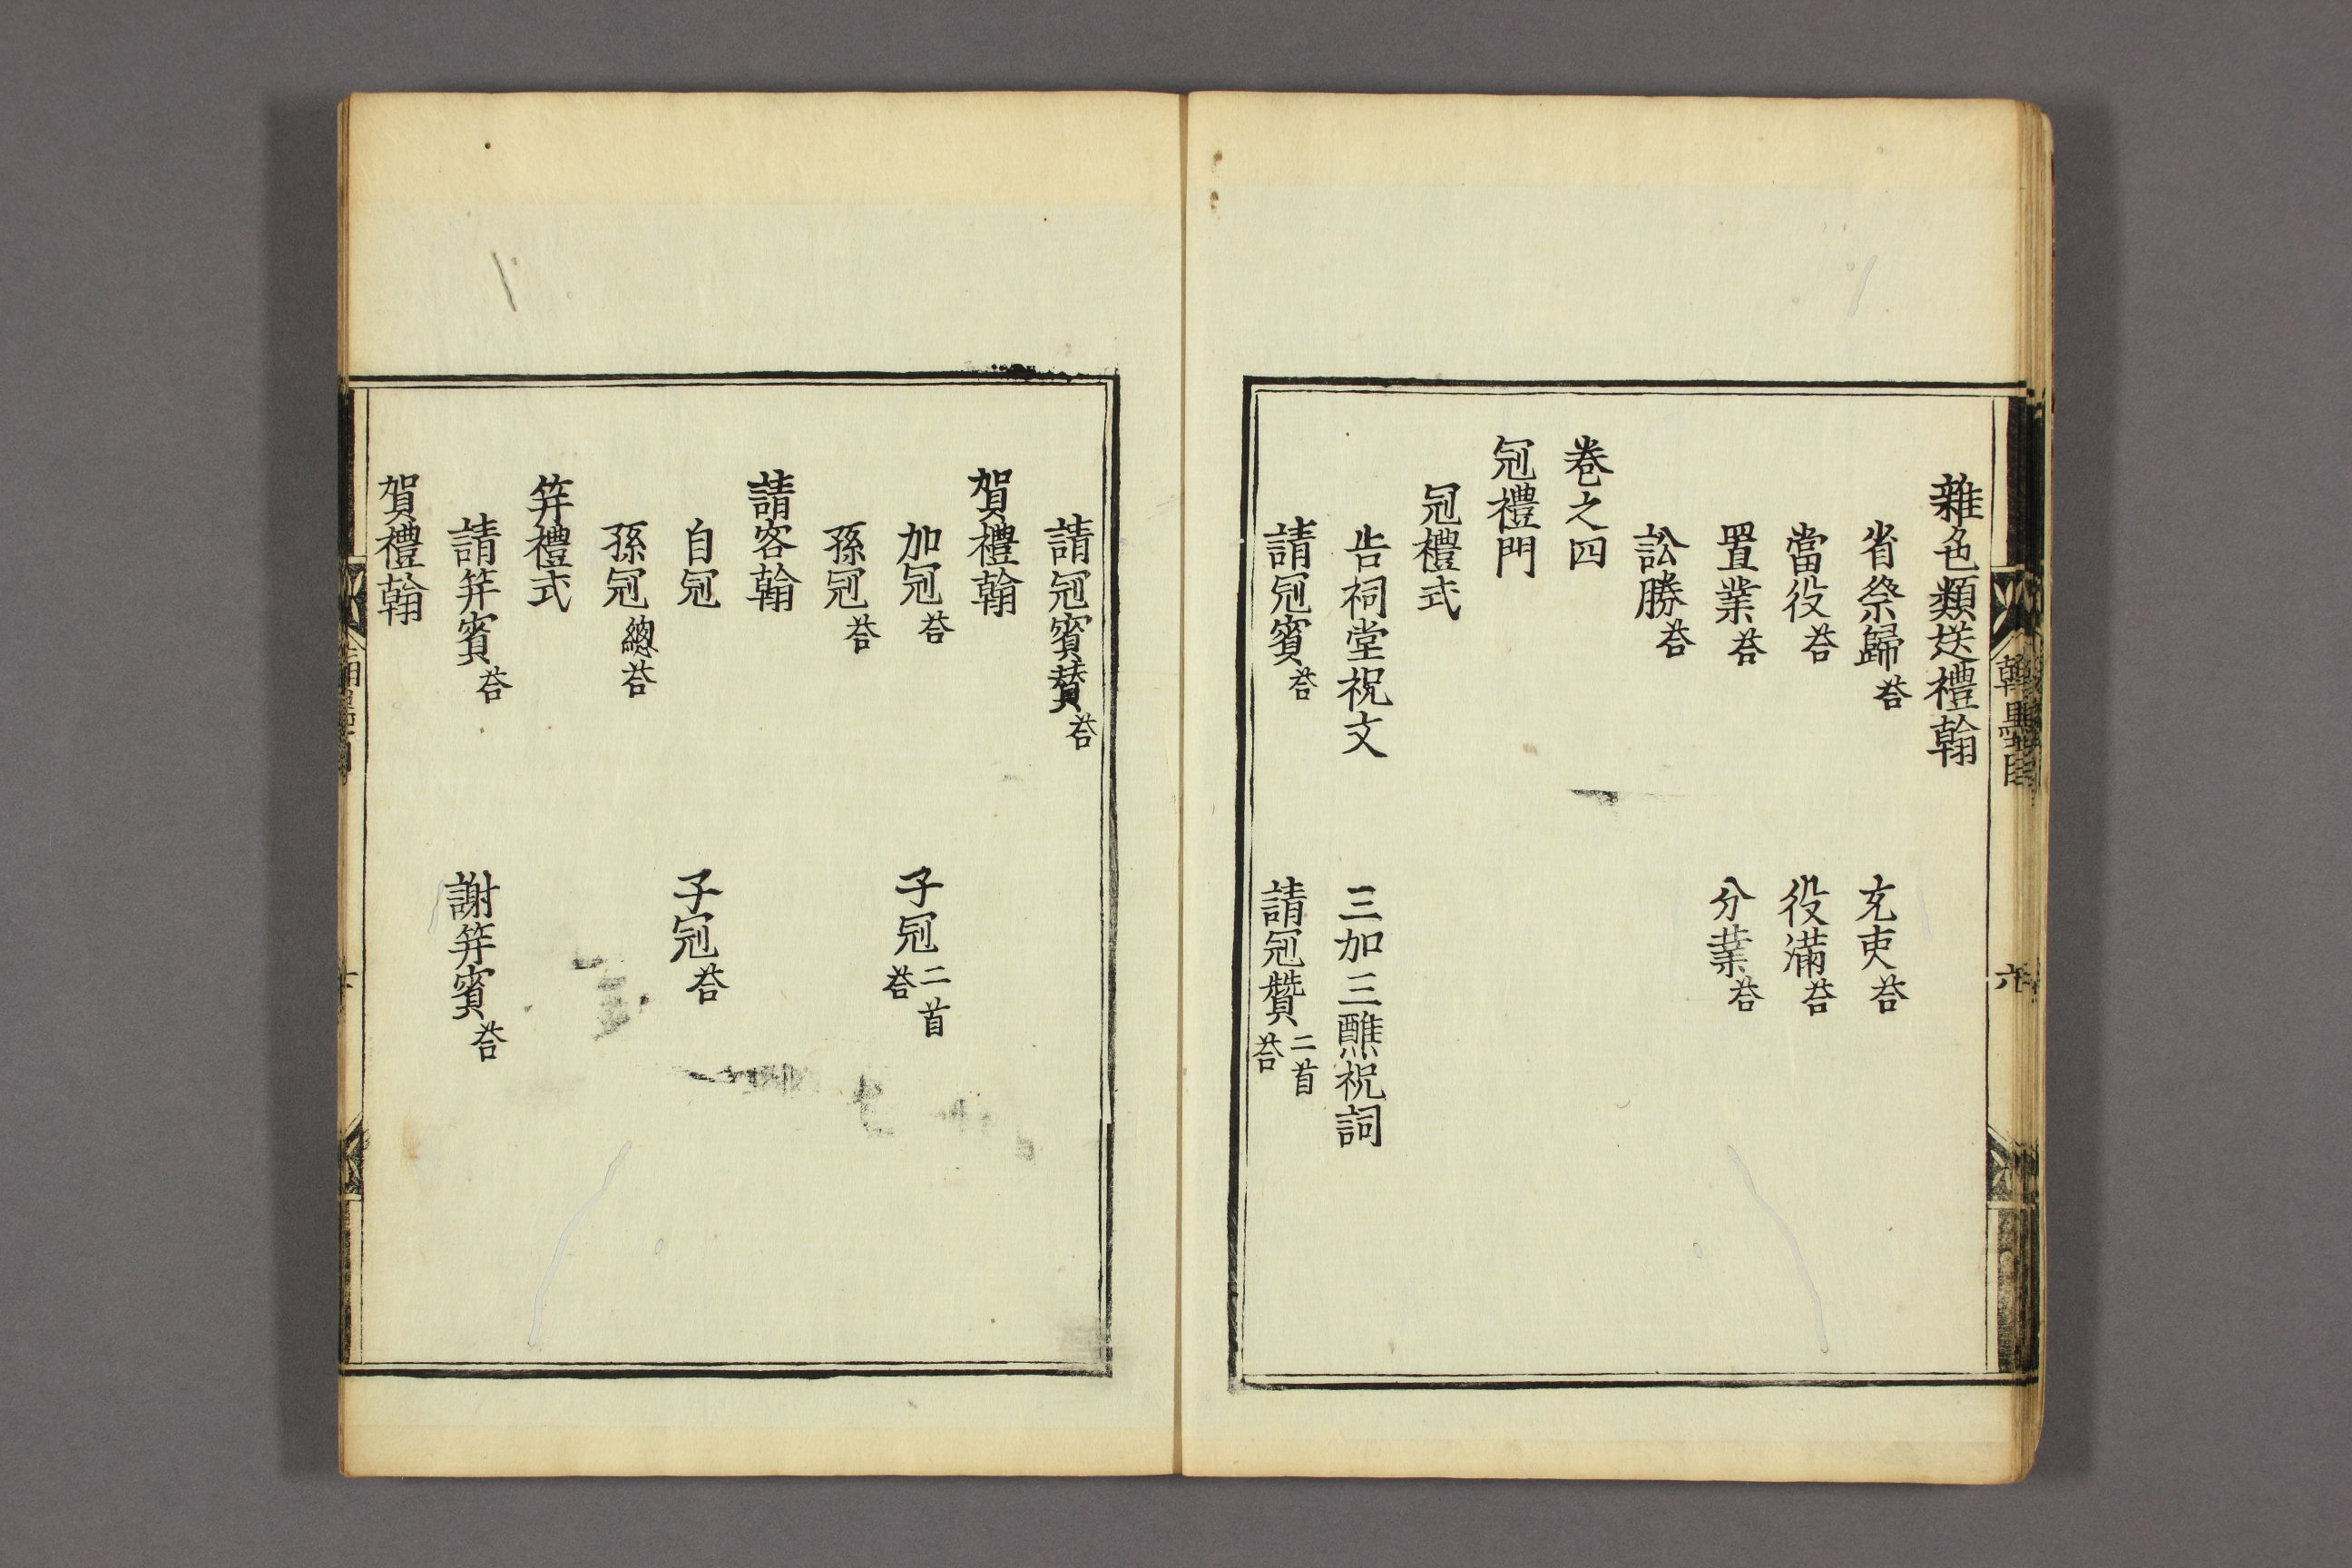 雜色類送禮翰
省祭歸荅　充吏荅
當役荅　役滿荅
置業荅　分業荅
訟勝荅
卷之四
冠禮門
冠禮式
告祠堂祝文　三加三醮祝詞
請冠賓荅　請冠贊二首荅
請冠賓贊荅
賀禮翰
加冠荅　子冠二首荅
孫冠荅
請客翰
自冠　子冠荅
孫冠總荅
筓禮式
請筓賓荅　謝筓賓荅
賀禮翰